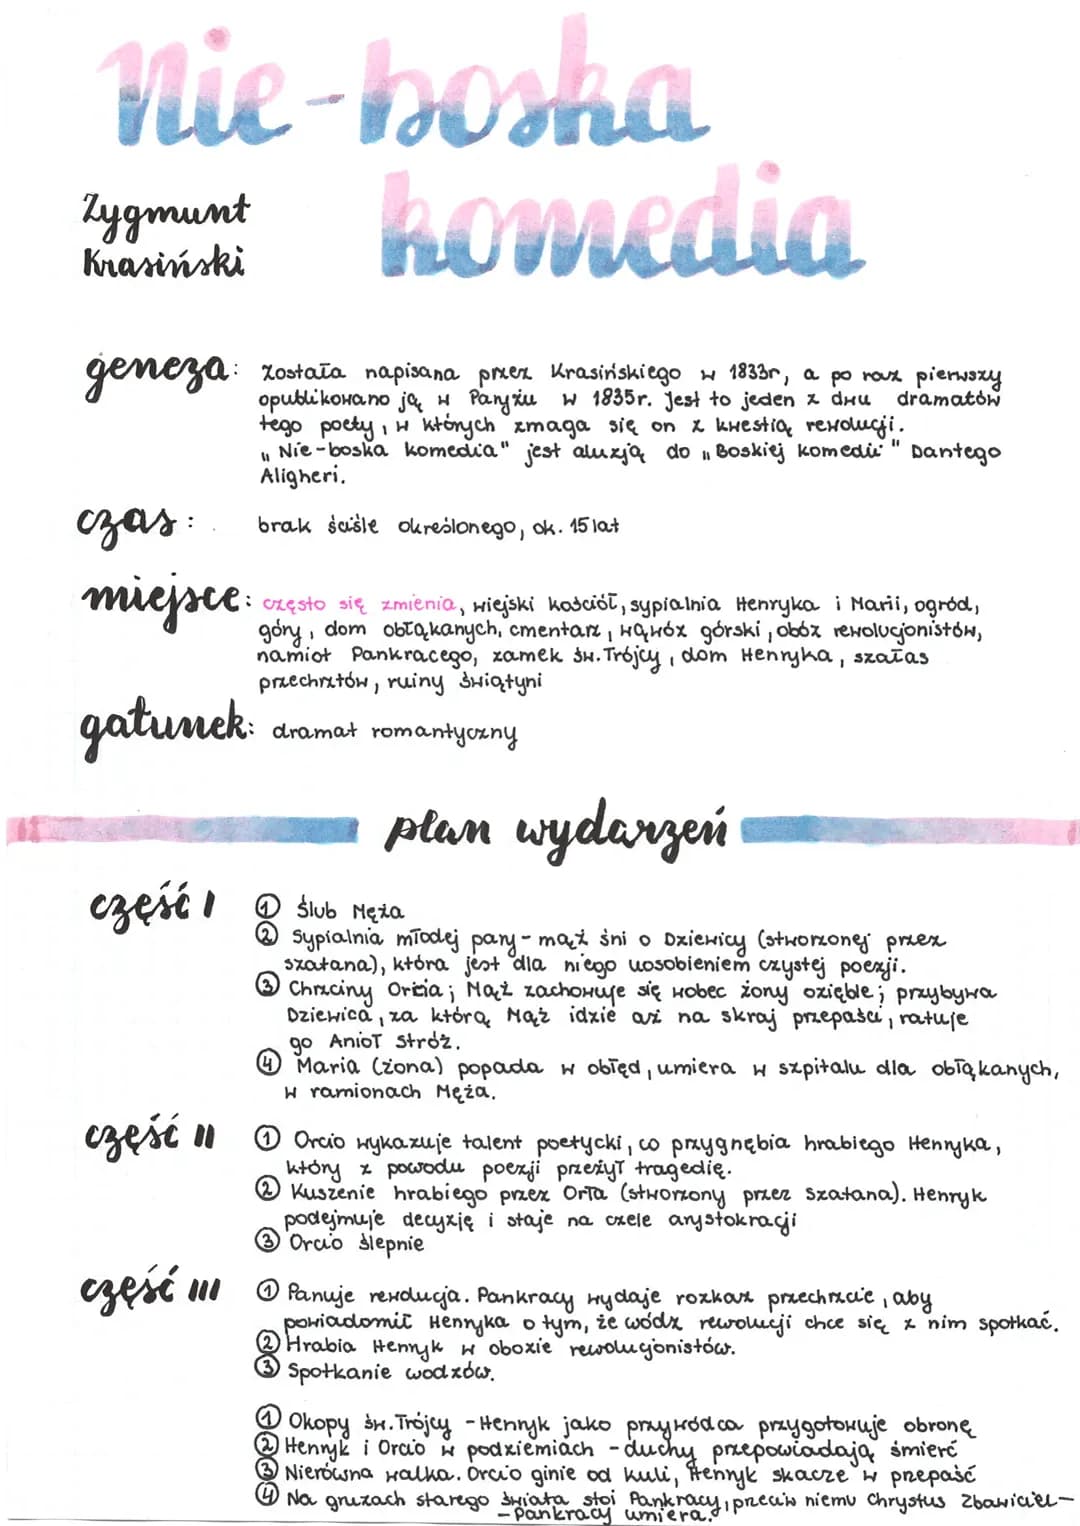 Nie-boska
komedia
Zygmunt
Krasiński
geneza: została napisana przez Krasińskiego w 1833r, a po raz pierwszy
opublikowano ją w Paryżu w 1835r. Jest to jeden z dwu dramatów
tego poety, w których zmaga się on z kwestią rewolucji.
„Nie-boska komedia" jest aluzją do „Boskiej komedii" Dantego
Aligheri.
czas: brak ściśle określonego, ok. 15 lat
miejsce: często się zmienia, wiejski kościół, sypialnia Henryka i Marii, ogród,
góry, dom obłąkanych, cmentarz, wąwóz górski, obóz rewolucjonistów,
namiot Pankracego, zamek św. Trójcy, dom Henryka, szałas
przechrztów, ruiny świątyni
gatunek: dramat romantyczny
plan wydarzeń
część I ① Ślub Męża
② Sypialnia młodej pary - mąż śni o Dziewicy (stworzonej przez
szatana), która jest dla niego uosobieniem czystej poezji.
③ Chrzciny Orcia; Mąż zachowuje się wobec żony ozięble; przybywa
Dziewica, za którą Mąż idzie aż na skraj przepaści, ratuje
go Anioł Stróż.
④ Maria (żona) popada w obłęd, umiera w szpitalu dla obłąkanych,
w ramionach Męża.
część II ① Orcio wykazuje talent poetycki, co przygnębia hrabiego Henryka,
który z powodu poezji przeżył tragedię.
② Kuszenie hrabiego przez Orła (stworzony przez Szatana). Henryk
podejmuje decyzję i staje na czele arystokracji
③ Orcio ślepnie
część III ① Panuje rewolucja. Pankracy wydaje rozkaz przechrzcie, aby
powiadomił Henryka o tym, że wódz rewolucji chce się z nim spotkać.
② Hrabia Henryk w obozie rewolucjonistów.
③ Spotkanie wodzów.
① Okopy św. Trójcy - Henryk jako przywódca przygotowuje obronę
② Henryk i Orcio w podziemiach - duchy przepowiadają śmierć
③ Nierówna walka. Orcio ginie od kuli, Henryk skacze w przepaść
④ Na gruzach starego świata stoi Pankracy, przeciw niemu Chrystus Zbawiciel -
- Pankracy umiera.